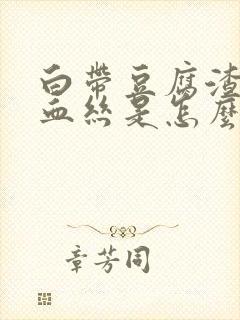 白帶豆腐渣
血絲是怎麼
章芳同